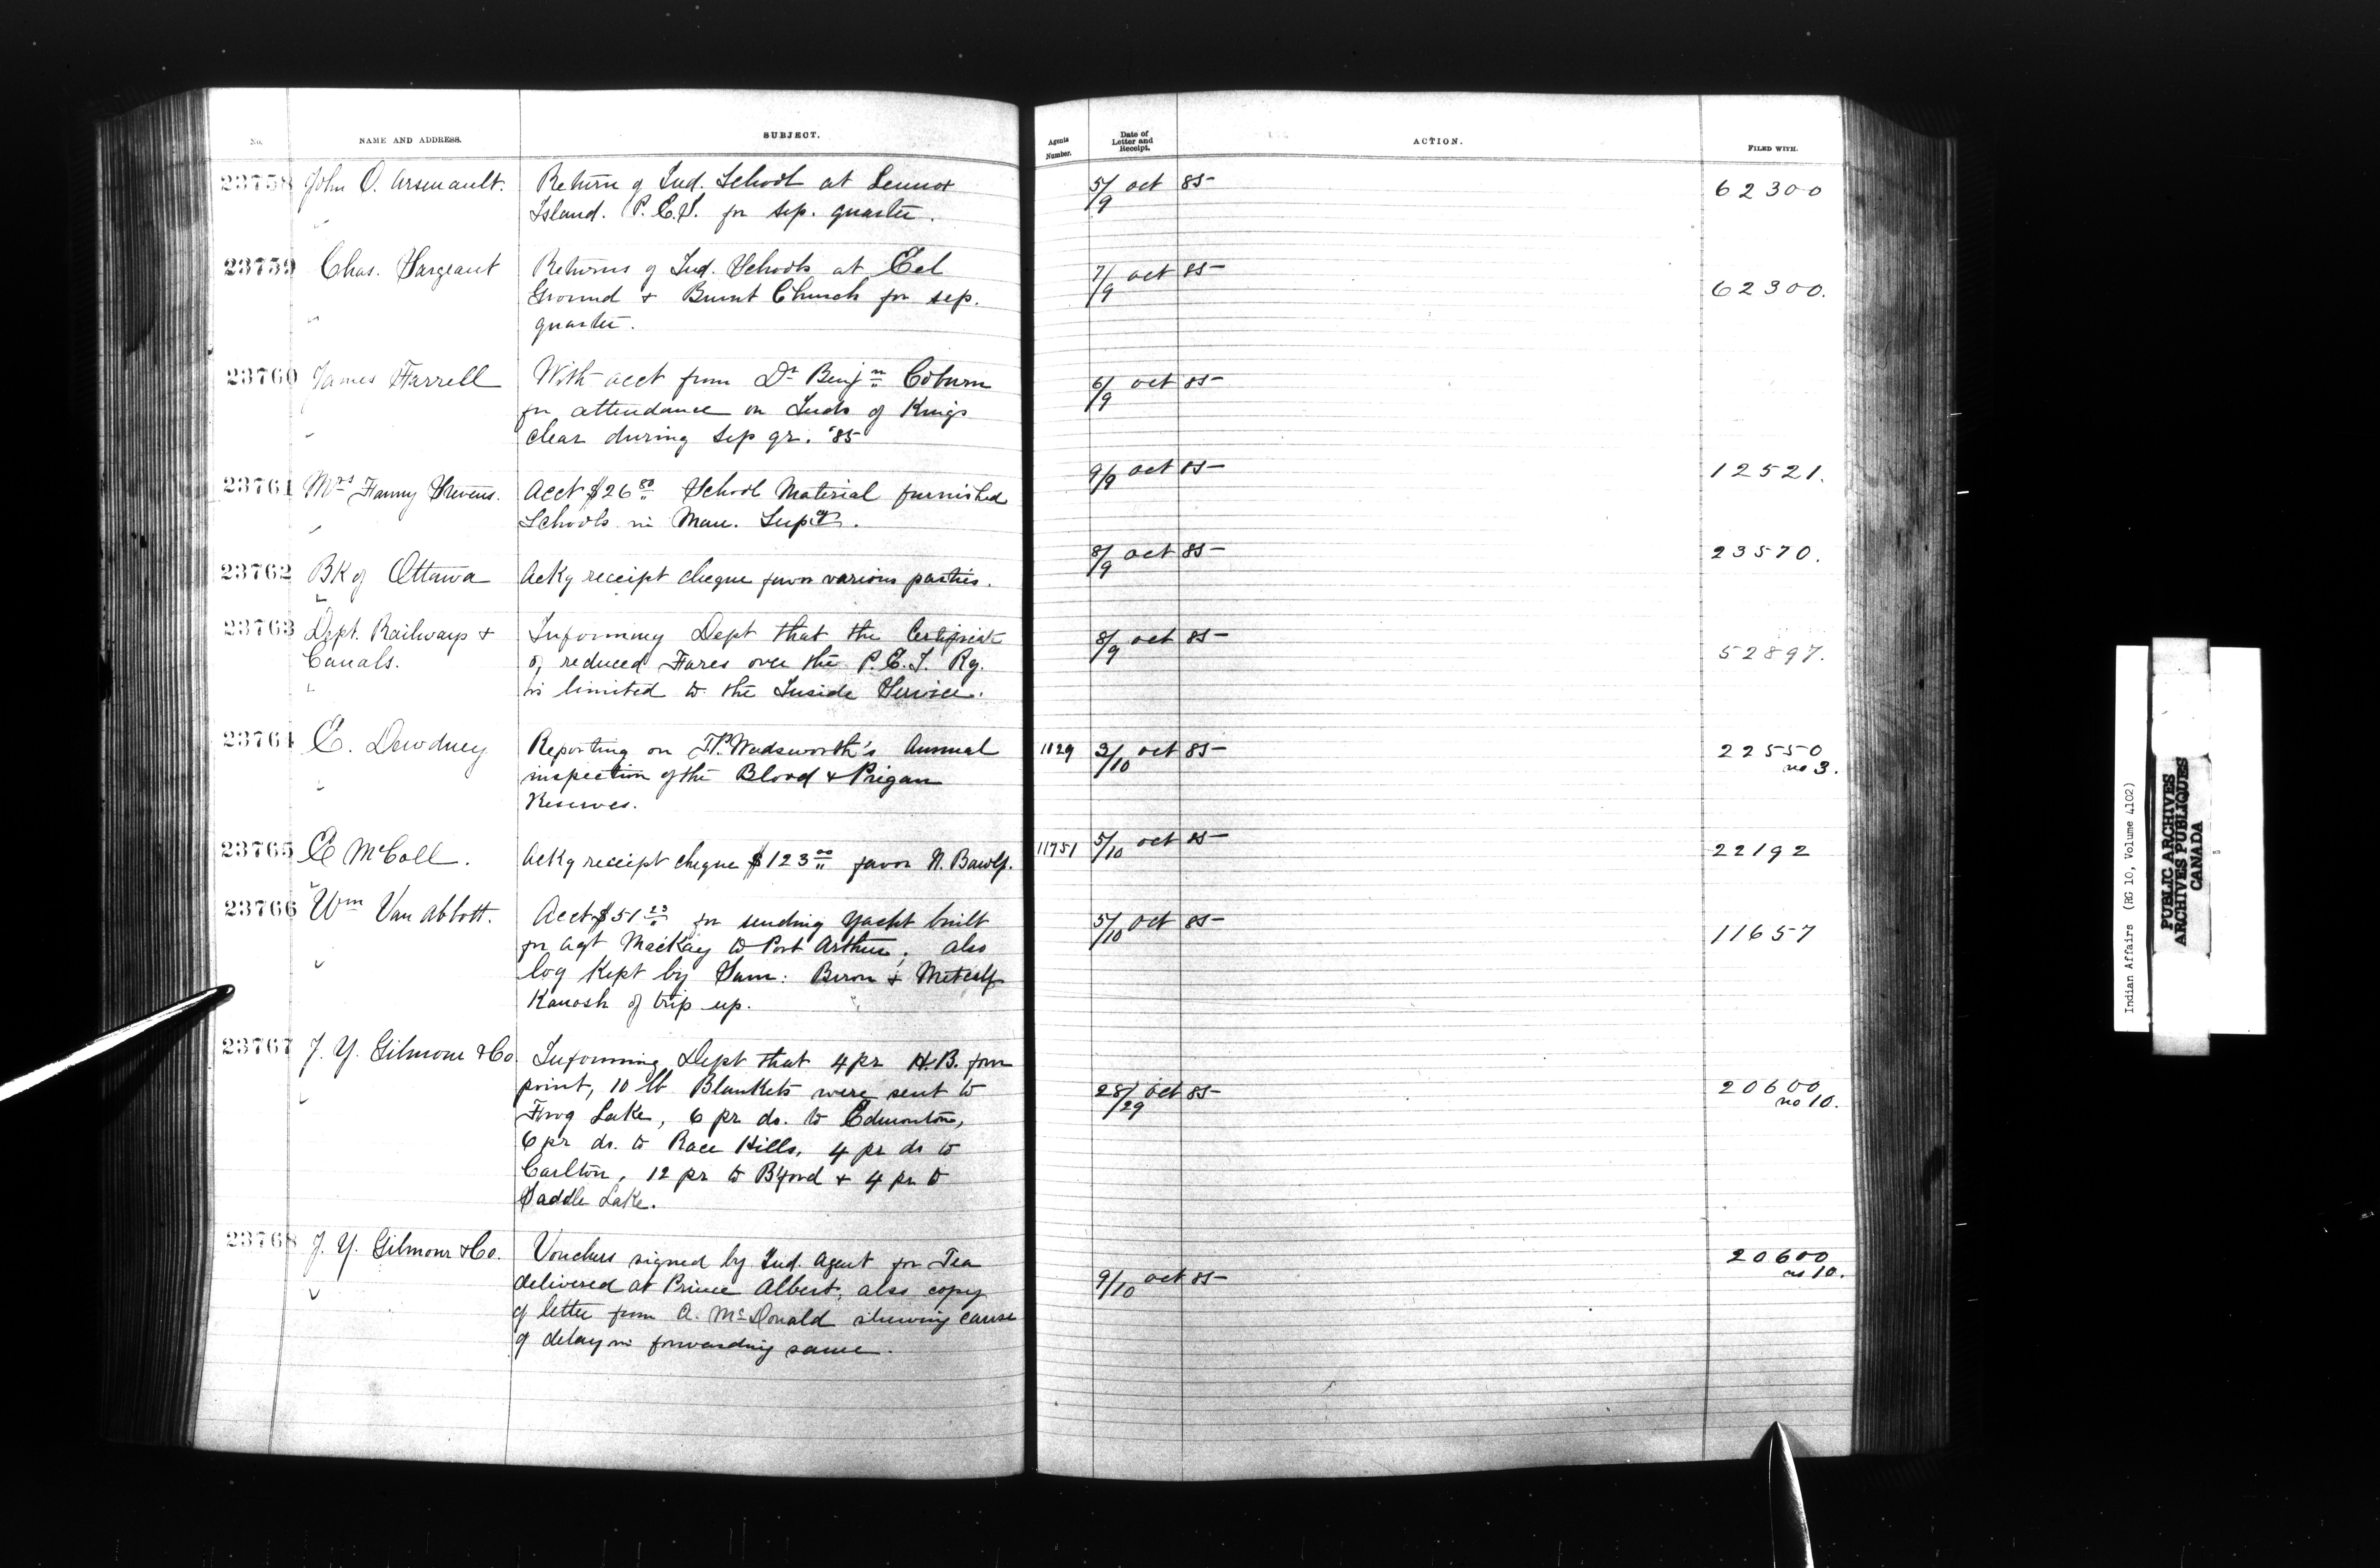 No. NAME AND ADDRESS. SUBJECT. Agents Number. Date of Letter and Receipt. ACTION. FILED WITH.
23758 John O. Arsenault. Return of Ind. School at Lennox 5/9 Oct 85 62300
Island. P.E.I. for Sep. quarter.
23759 Chas. Sargeant Returns of Ind. Schools at Eel 7/9 Oct 85 62300.
Ground & Burnt Church for Sep.
quarter.
23760 James Farrell With acct from Dr Benjn Coburn 6/9 Oct 85
for attendance on Inds of Kings
clear during Sep qr. '85
23761 Mrs Fanny Stevens. Acct $26 80 School Material furnished 9/9 Oct 85 12521.
Schools in Man. Supcy.
23762 Bk of Ottawa Ackg receipt cheque favor various parties. 8/9 Oct 85 23570.
23763 Dept. Railways & Informing Dept that the Certificate 8/9 Oct 85 52897.
Canals. of reduced Fares over the P.E.I. Ry.
is limited to the Inside Service.
23764 E. Dewdney Reporting on T.P. Wadsworth's Annual 1129 3/10 Oct 85 22550
inspection of the Blood & Piegan no 3.
Reserves.
23765 E McColl. Ackg receipt cheque $123 00 favor N. Bawlf. 11951 5/10 Oct 85 22192
23766 Wm Van Abbott. Acct $51 23 for sending Yacht built 5/10 Oct 85 11657
for Agt MacKay to Port Arthur, also
log kept by Sam: Biron & Metcalf
Kanosh of trip up.
23767 J. Y. Gilmour & Co Informing Dept that 4 pr H.B. four
point, 10 lb Blankets were sent to 28/29 Oct 85 20600
Frog Lake, 6 pr do. to Edmonton, no 10.
6 pr do. to Race Hills, 4 pr do to
Carlton, 12 pr to B'ford & 4 pr to
Saddle Lake.
23768 J. Y. Gilmour & Co. Vouchers signed by Ind. Agent for Tea 20600
delivered at Prince Albert, also copy 9/10 Oct 85 no 10.
of letter from A. McDonald shewing cause
of delay in forwarding same.
Indian Affairs (RG 10, Volume 4102)
PUBLIC ARCHIVES
ARCHIVES PUBLIQUES
CANADA